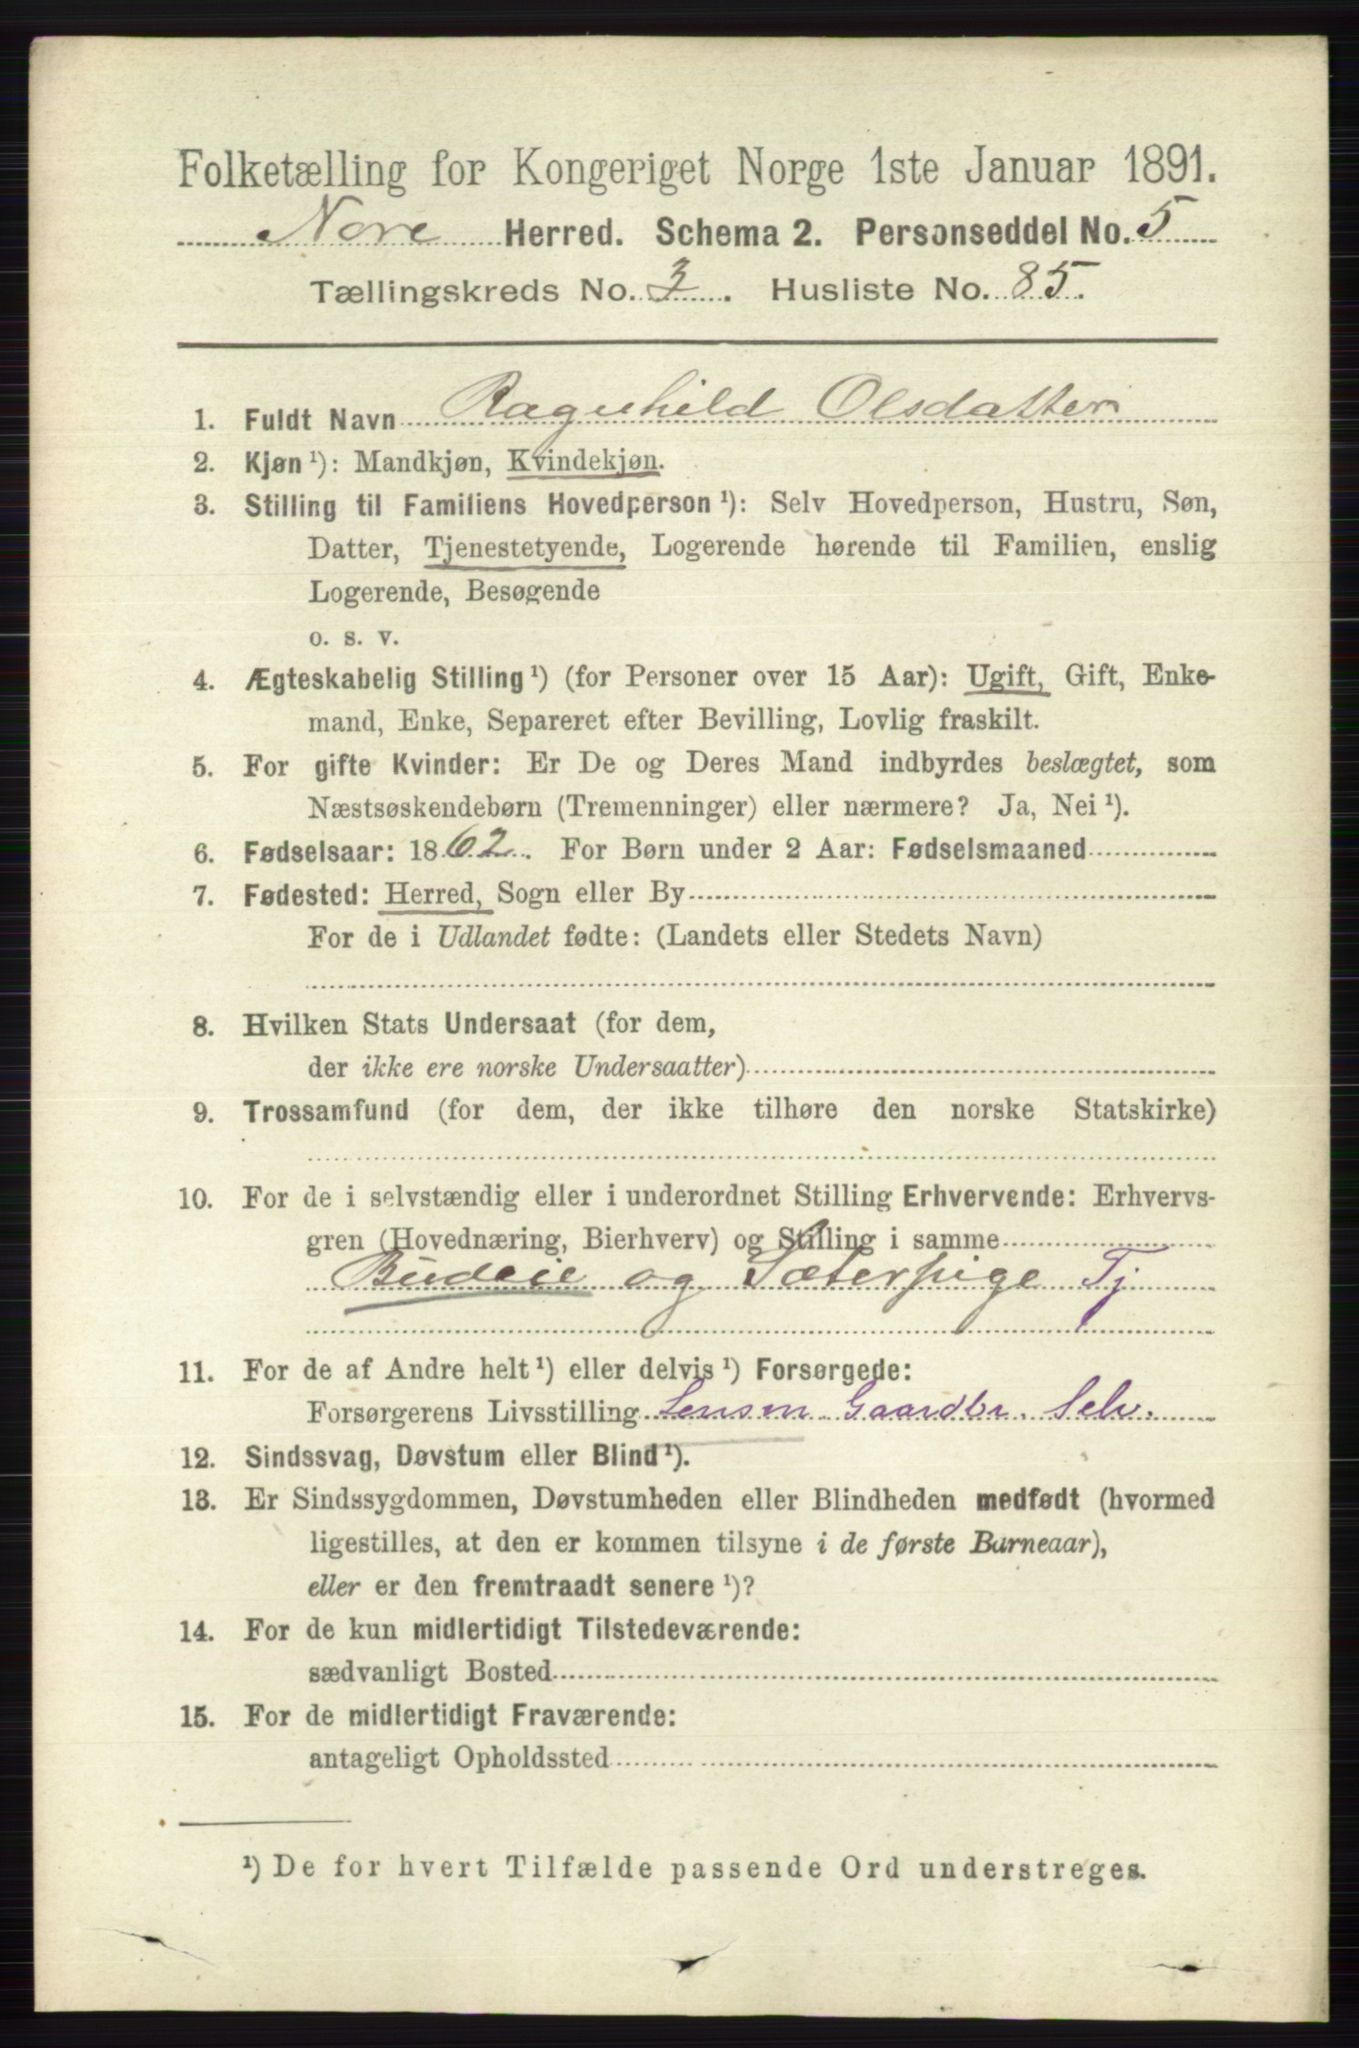 Folketælling for Kongeriget Norge 1ste Januar 1891.
Nore Herred. Schema 2. Personseddel No. 5
Tællingskreds No. 3. Husliste No. 85.
1. Fuldt Navn Ragnhild Olsdatter
2. Kjøn ¹): Mandkjøn, Kvindekjøn.
3. Stilling til Familiens Hovedperson ¹): Selv Hovedperson, Hustru, Søn,
Datter, Tjenestetyende, Logerende hørende til Familien, enslig
Logerende, Besøgende
o. s. v.
4. Ægteskabelig Stilling ¹) (for Personer over 15 Aar): Ugift, Gift, Enke-
mand, Enke, Separeret efter Bevilling, Lovlig fraskilt.
5. For gifte Kvinder: Er De og Deres Mand indbyrdes beslægtet, som
Næstsøskendebørn (Tremenninger) eller nærmere? Ja, Nei ¹).
6. Fødselsaar: 1862. For Børn under 2 Aar: Fødselsmaaned
7. Fødested: Herred, Sogn eller By
For de i Udlandet fødte: (Landets eller Stedets Navn)
8. Hvilken Stats Undersaat (for dem,
der ikke ere norske Undersaatter)
9. Trossamfund (for dem, der ikke tilhøre den norske Statskirke)
10. For de i selvstændig eller i underordnet Stilling Erhvervende: Erhvervs-
gren (Hovednæring, Bierhverv) og Stilling i samme
Budeie og Sæterpige Tj
11. For de af Andre helt ¹) eller delvis ¹) Forsørgede:
Forsørgerens Livsstilling Lensm Gaardbr. Selv.
12. Sindssvag, Døvstum eller Blind ¹).
13. Er Sindssygdommen, Døvstumheden eller Blindheden medfødt (hvormed
ligestilles, at den er kommen tilsyne i de første Barneaar),
eller er den fremtraadt senere ¹)?
14. For de kun midlertidigt Tilstedeværende:
sædvanligt Bosted
15. For de midlertidigt Fraværende:
antageligt Opholdssted
¹) De for hvert Tilfælde passende Ord understreges.